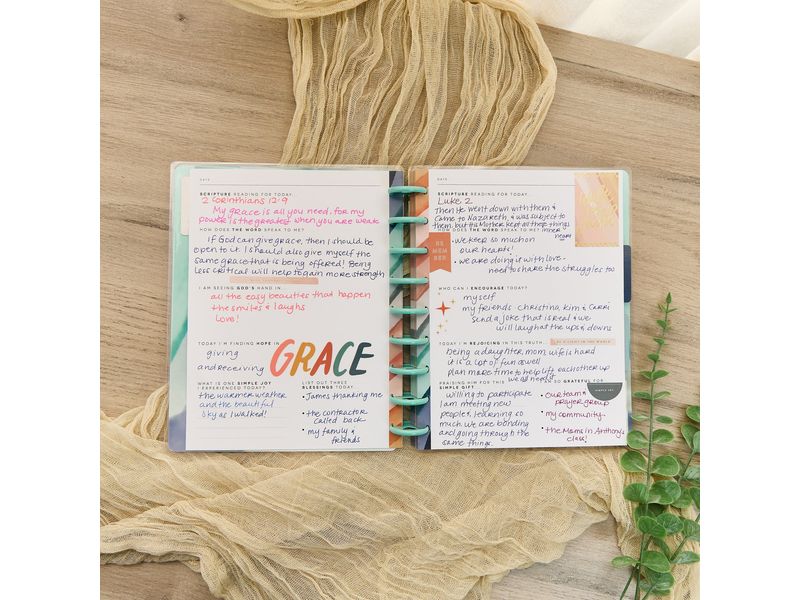 DATE
SCRIPTURE READING FOR TODAY...
2 Corinthians 12:9
My grace is all you need, for my
power is the greatest when you are weak
HOW DOES THE WORD SPEAK TO ME?
If God can give grace, then I should be
open to it. I should also give myself the
same grace that is being offered! Being
less critical will help to gain more strength
I AM SEEING GOD'S HAND IN...
all the easy beauties that happen
the smiles & laughs
Love!
TODAY I'M FINDING HOPE IN
giving
and receiving
GRACE
WHAT IS ONE SIMPLE JOY
I EXPERIENCED TODAY?
the warmer weather
and the beautiful
sky as I walked!
LIST OUT THREE
BLESSINGS TODAY
• James thanking me
• the contractor
called back
• my family &
friends
DATE
SCRIPTURE READING FOR TODAY...
Luke 2
Then He went down with them &
came to Nazareth, & was subject to
them, but his Mother kept all these things
in her
heart
HOW DOES THE WORD SPEAK TO ME?
RE
MEM
BER
• we keep so much on
our hearts!
• we are doing it with love -
need to share the struggles too
WHO CAN I ENCOURAGE TODAY?
myself
my friends - christina, kim & Carri
send a joke that is real & we
will laugh at the ups & downs
TODAY I'M REJOICING IN THIS TRUTH...
BE A LIGHT IN THE WORLD
being a daughter, mom, wife is hard
it is a lot of fun as well
plan more time to help lift each other up
we all need it
PRAISING HIM FOR THIS
SIMPLE GIFT...
willing to participate
I am meeting new
people & learning so
much. We are bonding
and going through the
same things.
I AM SO GRATEFUL FOR
SIMPLE JOY
• our team &
prayer group
• my community
• the Moms in Anthony's
class!